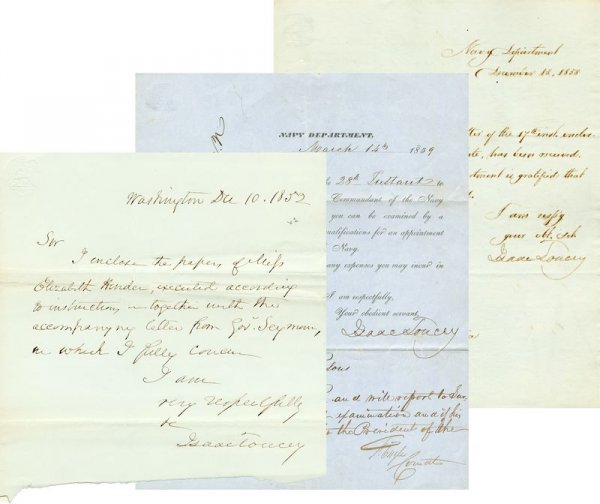 Washington Dec 10. 1852
Sir
I enclose the papers of Miss
Elizabeth Kinder, executed according
to instructions together with the
accompanying letter from Gov. Seymour,
in which I fully concur
I am
very respectfully
&c
Isaac Toucey
NAVY DEPARTMENT,
March 14th 1859
28th Instant
Commandant of the Navy
you can be examined by a
ualifications for an appointment
Navy.
any expenses you may incur in
I am respectfully,
Your obedient servant,
Isaac Toucey
and will report to
examination and if
the President of the
Comdt
Navy Department
December 18, 1858
of the 17th inst. enclo-
has been received.
tment is gratified that
I am respy
your ob. svt
Isaac Toucey